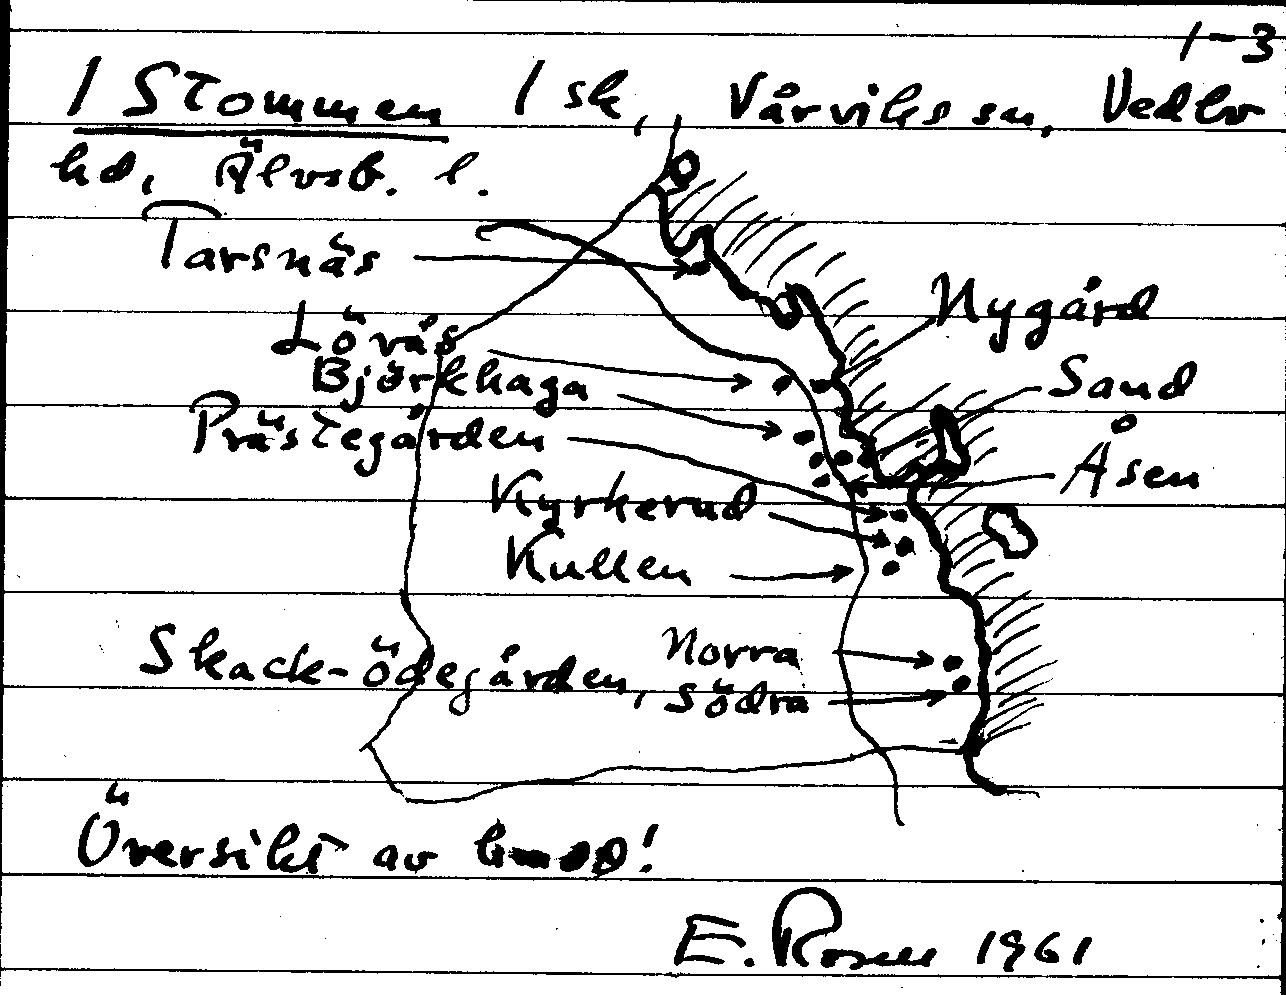 1-3
1 Stommen 1 sk, Vårviks sn, Vedbo
hd, Älvsb. l.
Tarsnäs
Nygård
Lövås
Björkhaga
Sand
Prästegården
Åsen
Kyrkerud
Kullen
Skack-ödegården, Norra
Södra
Översikt av
E. Rosell 1961